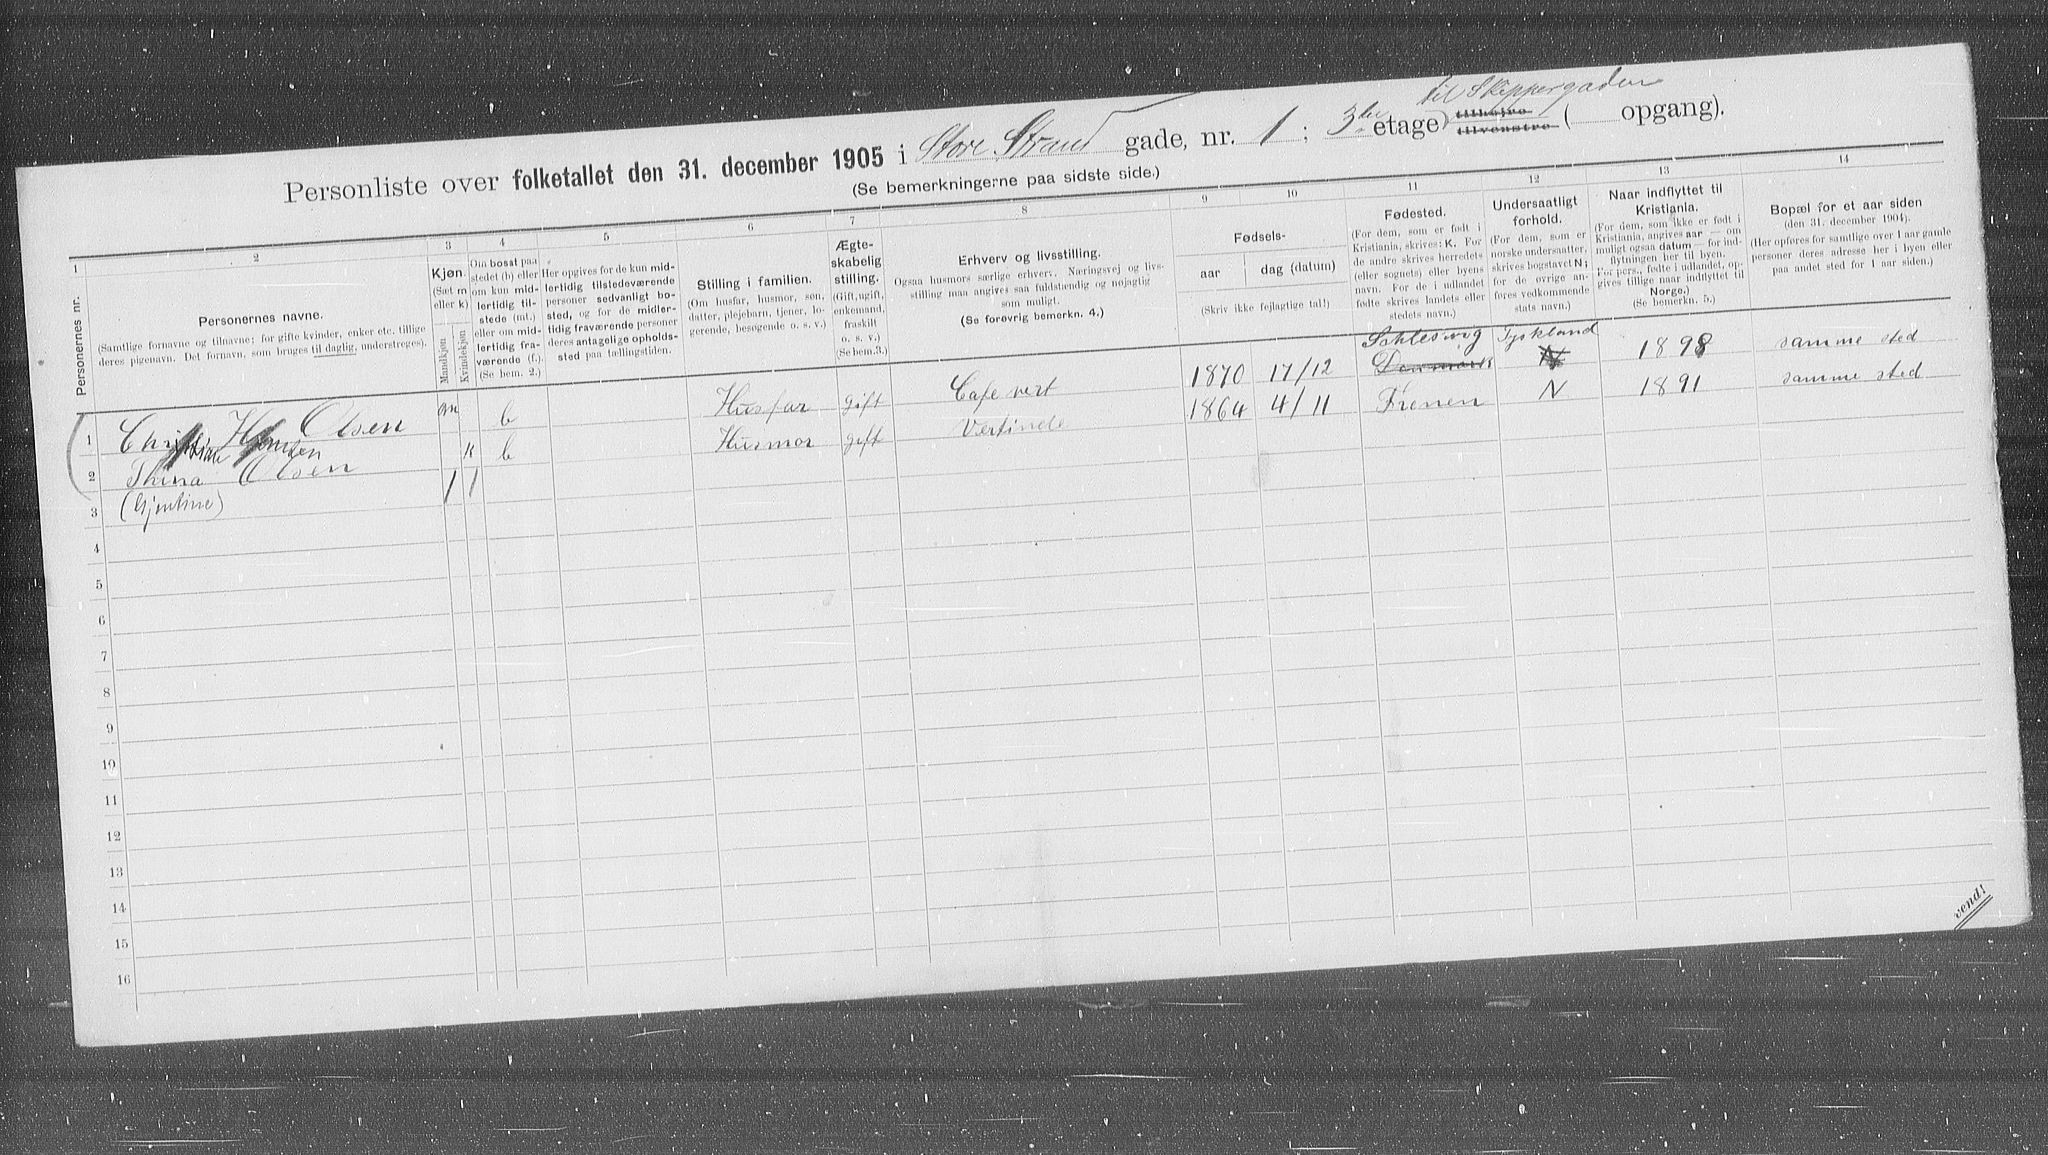 til Skippergaden
Personliste over folketallet den 31. december 1905 i Store Strand gade, nr. 1; 3die etage) tilhøjre tilvenstre ( opgang).
(Se bemerkningerne paa sidste side.)
1 2 3 4 5 6 7 8 9 10 11 12 13 14
Personernes nr.
Personernes navne.
(Samtlige fornavne og tilnavne; for gifte kvinder, enker etc. tillige
deres pigenavn. Det fornavn, som bruges til daglig, understreges).
Kjøn.
(Sæt m
eller k)
Mandkjøn
Kvindekjøn
Om bosat paa
stedet (b) eller
om kun mid-
lertidig til-
stede (mt.)
eller om mid-
lertidig fra-
værende (f.).
(Se bem. 2.)
Her opgives for de kun mid-
lertidig tilstedeværende
personer sedvanligt bo-
sted, og for de midler-
tidig fraværende personer
deres antagelige opholds-
sted paa tællingstiden.
Stilling i familien.
(Om husfar, husmor, søn,
datter, plejebarn, tjener, lo-
gerende, besøgende o. s. v.)
Ægte-
skabelig
stilling.
(Gift, ugift,
enkemand,
fraskilt
o. s. v.)
(Se bem.3.)
Erhverv og livsstilling.
Ogsaa husmors særlige erhverv. Næringsvej og livs-
stilling maa angives saa fuldstændig og nøjagtig
som muligt.
(Se forøvrig bemerkn. 4.)
Fødsels-
aar
dag (datum)
(Skriv ikke fejlagtige tal!)
Fødested.
(For dem, som er født i
Kristiania, skrives: K. For
de andre skrives herredets
(eller sognets) eller byens
navn. For de i udlandet
fødte skrives landets eller
stedets navn.)
Undersaatligt
forhold.
(For dem, som er
norske undersaatter,
skrives bogstavet N;
for de øvrige an-
føres vedkommende
stats navn.)
Naar indflyttet til
Kristiania.
(For dem, som ikke er født i
Kristiania, angives aar — om
muligt ogsaa datum — for ind-
flytningen her til byen.
For pers., fødte i udlandet, op-
gives tillige naar indflyttet til
Norge.)
(Se bemerkn. 5.)
Bopæl for et aar siden
(den 31. december 1904).
(Her opføres for samtlige over 1 aar gamle
personer deres adresse her i byen eller
paa andet sted for 1 aar siden.)
Schlesvig Tyskland
1 Christian Hansen Olsen m b Husfar gift Cafevert 1870 17/12 Denmark N 1898 samme sted
2 Thina Olsen k b Husmor gift Vertinde 1864 4/11 Frenen N 1891 samme sted
3 (Gjentine) 1 1
4
5
6
7
8
9
10
11
12
13
14
15
16
vend!